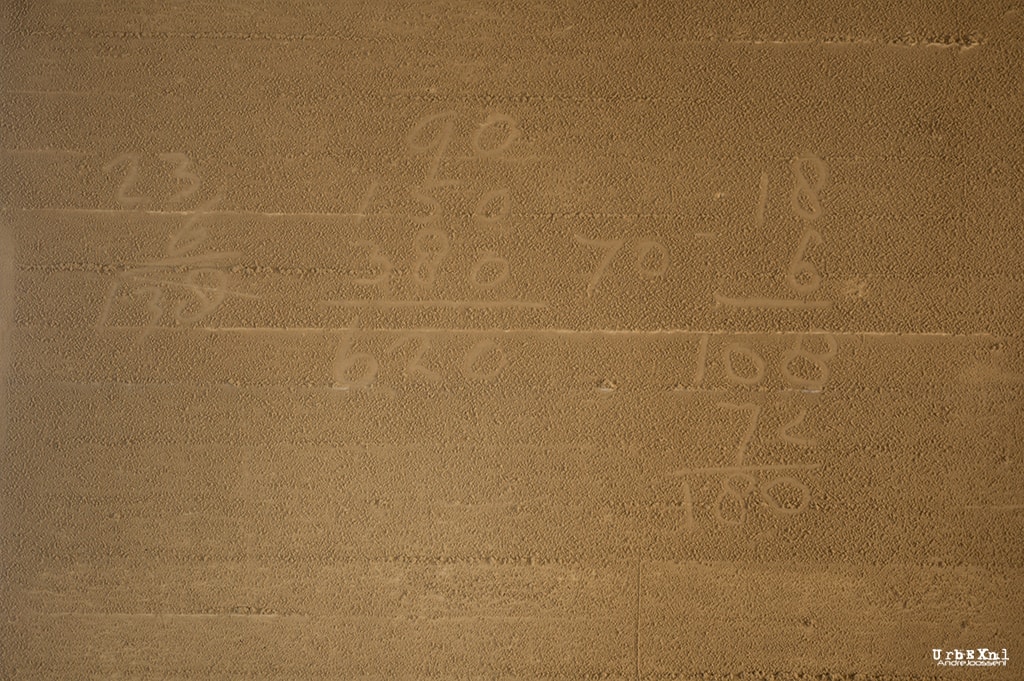 23
6
138
90
150
380
620
70
18
6
108
72
180
UrbEXnl
AndreJoossenl